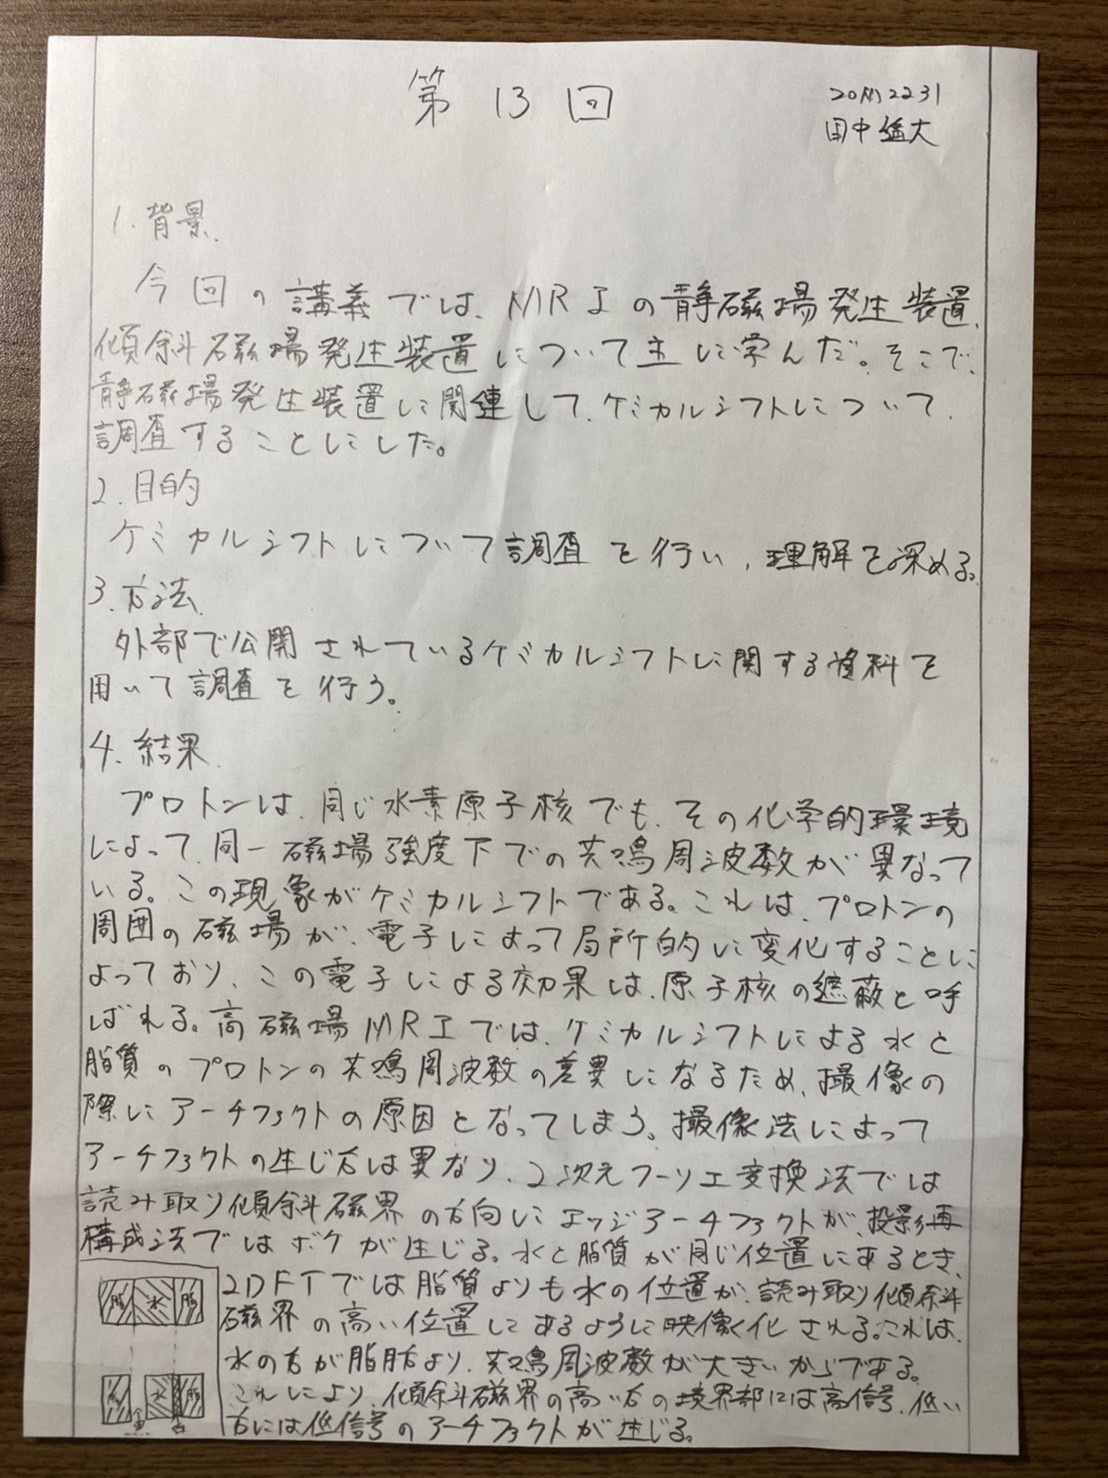 第13回
田中
1. 背景
今回の講義では、MRIの静磁場発生装置、
傾斜磁場発生装置について主に学んだ。そこで、
静磁場発生装置に関連して、ケミカルシフトについて、
調査することにした。
2. 目的
ケミカルシフトについて調査を行い、理解を深める。
3. 方法
外部で公開されているケミカルシフトに関する資料を
用いて調査を行う。
4. 結果
プロトンは、同じ水素原子核でも、その化学的環境
によって、同一磁場強度下での共鳴周波数が異なって
いる。この現象がケミカルシフトである。これは、プロトンの
周囲の磁場が、電子によって局所的に変化することに
よっており、この電子による効果は、原子核の遮蔽と呼
ばれる。高磁場MRIでは、ケミカルシフトによる水と
脂質のプロトンの共鳴周波数の差異になるため、撮像の
際にアーチファクトの原因となってしまう。撮像法によって
アーチファクトの生じ方は異なり、2次元フーリエ変換法では
読み取り傾斜磁界の方向にエッジアーチファクトが、投影再
構成法ではボケが生じる。水と脂質が同じ位置にあるとき、
2DFTでは脂質よりも水の位置が、読み取り傾斜
磁界の高い位置にあるように映像化される。これは、
水の方が脂肪より、共鳴周波数が大きいからである。
これにより、傾斜磁界の高い方の境界部には高信号、低い
方には低信号のアーチファクトが生じる。
脂 水 脂
脂 水 脂